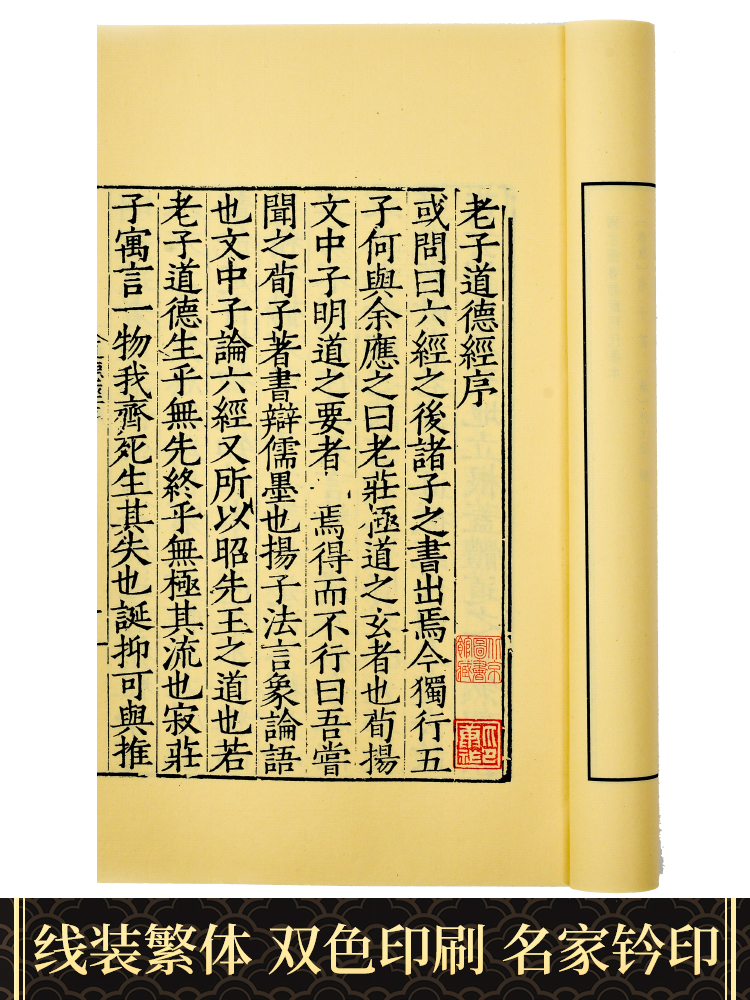 老子道德經序
或問曰六經之後諸子之書出焉今獨行五
子何與余應之曰老莊極道之玄者也荀揚
文中子明道之要者 焉得而不行曰吾嘗
聞之荀子著書辯儒墨也揚子法言象論語
也文中子論六經又所以昭先王之道也若
老子道德生乎無先終乎無極其流也寂莊
子寓言一物我齊死生其失也誕抑可與推
北京
圖書
館藏
线装繁体 双色印刷 名家钤印